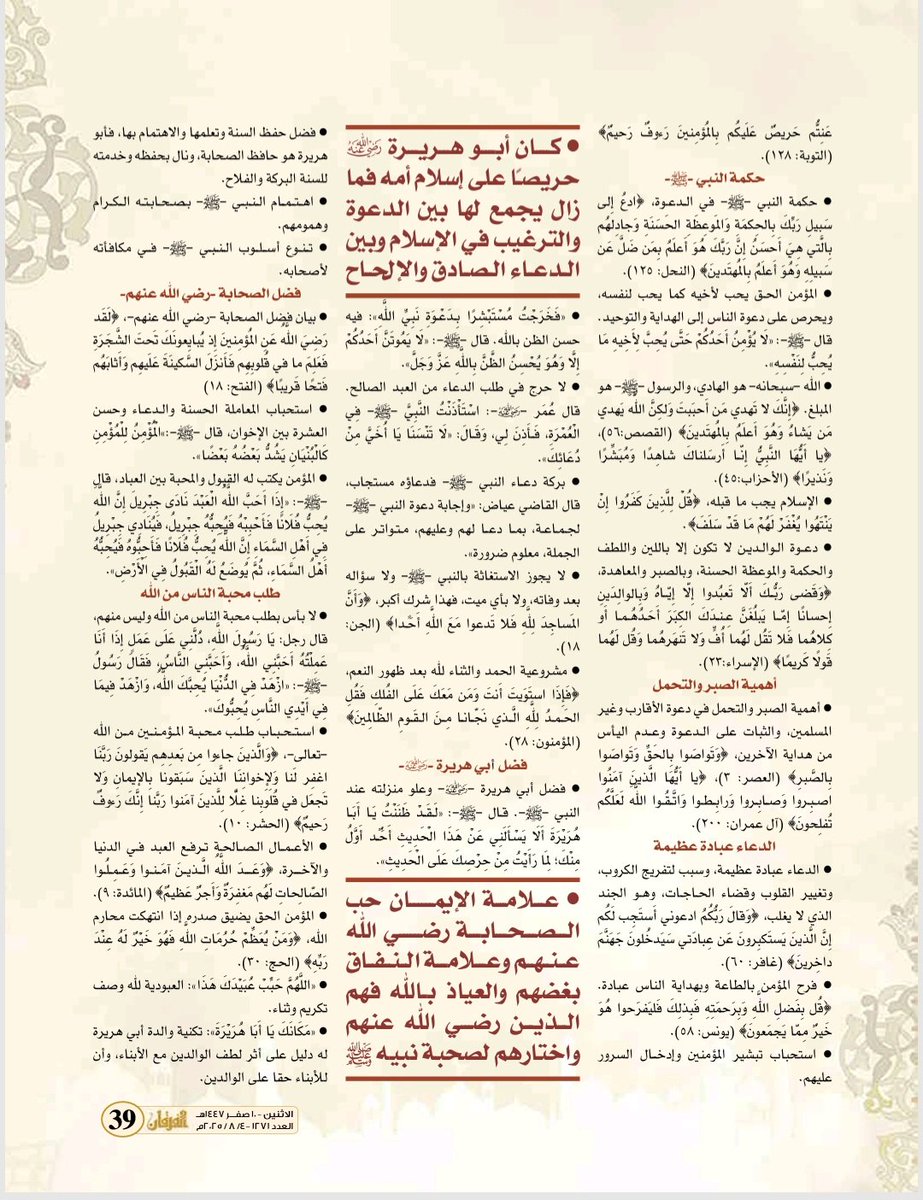 عَنِتُّم حَريصٌ عَلَيكُم بِالمُؤمِنينَ رَءوفٌ رَحيمٌ﴾
(التوبة: ١٢٨).
حكمة النبي -ﷺ-
● حكمة النبي -ﷺ- في الدعوة، ﴿ادعُ إِلى
سَبيلِ رَبِّكَ بِالحِكمَةِ وَالمَوعِظَةِ الحَسَنَةِ وَجادِلهُم
بِالَّتي هِيَ أَحسَنُ إِنَّ رَبَّكَ هُوَ أَعلَمُ بِمَن ضَلَّ عَن
سَبيلِهِ وَهُوَ أَعلَمُ بِالمُهتَدينَ﴾ (النحل: ١٢٥).
● المؤمن الحق يحب لأخيه كما يحب لنفسه،
ويحرص على دعوة الناس إلى الهداية والتوحيد.
قال -ﷺ-: «لَا يُؤْمِنُ أَحَدُكُمْ حَتَّى يُحِبَّ لِأَخِيهِ مَا
يُحِبُّ لِنَفْسِهِ».
● الله -سبحانه- هو الهادي، والرسول -ﷺ- هو
المبلغ. ﴿إِنَّكَ لا تَهدي مَن أَحبَبتَ وَلكِنَّ اللَّهَ يَهدي
مَن يَشاءُ وَهُوَ أَعلَمُ بِالمُهتَدينَ﴾ (القصص:٥٦)،
﴿يا أَيُّهَا النَّبِيُّ إِنّا أَرسَلناكَ شاهِدًا وَمُبَشِّرًا
وَنَذيرًا﴾ (الأحزاب:٤٥).
● الإسلام يجب ما قبله، ﴿قُلْ لِلَّذِينَ كَفَرُوا إِنْ
يَنْتَهُوا يُغْفَرْ لَهُمْ مَا قَدْ سَلَفَ﴾.
● دعوة الوالدين لا تكون إلا باللين واللطف
والحكمة والموعظة الحسنة، وبالصبر والمعاهدة،
﴿وَقَضى رَبُّكَ أَلّا تَعبُدوا إِلّا إِيّاهُ وَبِالوالِدَينِ
إِحسانًا إِمّا يَبلُغَنَّ عِندَكَ الكِبَرَ أَحَدُهُما أَو
كِلاهُما فَلا تَقُل لَهُما أُفٍّ وَلا تَنهَرهُما وَقُل لَهُما
قَولًا كَريمًا﴾ (الإسراء:٢٣).
أهمية الصبر والتحمل
● أهمية الصبر والتحمل في دعوة الأقارب وغير
المسلمين، والثبات على الدعوة وعدم اليأس
من هداية الآخرين، ﴿وَتَواصَوا بِالحَقِّ وَتَواصَوا
بِالصَّبرِ﴾ (العصر: ٣)، ﴿يا أَيُّهَا الَّذينَ آمَنُوا
اصبِروا وَصابِروا وَرابِطوا وَاتَّقُوا اللَّهَ لَعَلَّكُم
تُفلِحونَ﴾ (آل عمران: ٢٠٠).
الدعاء عبادة عظيمة
● الدعاء عبادة عظيمة، وسبب لتفريج الكروب،
وتغيير القلوب وقضاء الحاجات، وهو الجند
الذي لا يغلب، ﴿وَقالَ رَبُّكُمُ ادعوني أَستَجِب لَكُم
إِنَّ الَّذينَ يَستَكبِرونَ عَن عِبادَتي سَيَدخُلونَ جَهَنَّمَ
داخِرينَ﴾ (غافر: ٦٠).
● فرح المؤمن بالطاعة وبهداية الناس عبادة.
﴿قُل بِفَضلِ اللَّهِ وَبِرَحمَتِهِ فَبِذلِكَ فَليَفرَحوا هُوَ
خَيرٌ مِمّا يَجمَعونَ﴾ (يونس: ٥٨).
● استحباب تبشير المؤمنين وإدخال السرور
عليهم.
● كان أبو هريرة رضي الله عنه
حريصًا على إسلام أمه فما
زال يجمع لها بين الدعوة
والترغيب في الإسلام وبين
الدعاء الصادق والإلحاح
● «فَخَرَجْتُ مُسْتَبْشِرًا بِدَعْوَةِ نَبِيِّ اللَّهِ»: فيه
حسن الظن بالله. قال -ﷺ-: «لَا يَمُوتَنَّ أَحَدُكُمْ
إِلَّا وَهُوَ يُحْسِنُ الظَّنَّ بِاللَّهِ عَزَّ وَجَلَّ».
● لا حرج في طلب الدعاء من العبد الصالح.
قال عُمَر -رضي الله عنه-: اسْتَأْذَنْتُ النَّبِيَّ -ﷺ- فِي
الْعُمْرَةِ، فَأَذِنَ لِي، وَقَالَ: «لَا تَنْسَنَا يَا أُخَيَّ مِنْ
دُعَائِكَ».
● بركة دعاء النبي -ﷺ- فدعاؤه مستجاب،
قال القاضي عياض: «وإجابة دعوة النبي -ﷺ-
لجماعة، بما دعا لهم وعليهم، متواتر على
الجملة، معلوم ضرورة».
● لا يجوز الاستغاثة بالنبي -ﷺ- ولا سؤاله
بعد وفاته، ولا بأي ميت، فهذا شرك أكبر، ﴿وَأَنَّ
المَساجِدَ لِلَّهِ فَلا تَدعوا مَعَ اللَّهِ أَحَدًا﴾ (الجن:
١٨).
● مشروعية الحمد والثناء لله بعد ظهور النعم،
﴿فَإِذَا استَوَيتَ أَنتَ وَمَن مَعَكَ عَلَى الفُلكِ فَقُلِ
الحَمدُ لِلَّهِ الَّذي نَجّانا مِنَ القَومِ الظّالِمينَ﴾
(المؤمنون: ٢٨).
فضل أبي هريرة -رضي الله عنه-
● فضل أبي هريرة -رضي الله عنه- وعلو منزلته عند
النبي -ﷺ-. قال -ﷺ-: «لَقَدْ ظَنَنْتُ يَا أَبَا
هُرَيْرَةَ أَلَّا يَسْأَلَنِي عَنْ هَذَا الْحَدِيثِ أَحَدٌ أَوَّلُ
مِنْكَ؛ لِمَا رَأَيْتُ مِنْ حِرْصِكَ عَلَى الْحَدِيثِ».
● علامة الإيمان حب
الصحابة رضي الله
عنهم وعلامة النفاق
بغضهم والعياذ بالله فهم
الذين رضي الله عنهم
واختارهم لصحبة نبيه ﷺ
● فضل حفظ السنة وتعلمها والاهتمام بها، فأبو
هريرة هو حافظ الصحابة، ونال بحفظه وخدمته
للسنة البركة والفلاح.
● اهتمام النبي -ﷺ- بصحابته الكرام
وهمومهم.
● تنوع أسلوب النبي -ﷺ- في مكافأته
لأصحابه.
فضل الصحابة -رضي الله عنهم-
● بيان فضل الصحابة -رضي الله عنهم-، ﴿لَقَد
رَضِيَ اللَّهُ عَنِ المُؤمِنينَ إِذ يُبايِعونَكَ تَحتَ الشَّجَرَةِ
فَعَلِمَ ما في قُلوبِهِم فَأَنزَلَ السَّكينَةَ عَلَيهِم وَأَثابَهُم
فَتحًا قَريبًا﴾ (الفتح: ١٨)
● استحباب المعاملة الحسنة والدعاء وحسن
العشرة بين الإخوان، قال -ﷺ-:«الْمُؤْمِنُ لِلْمُؤْمِنِ
كَالْبُنْيَانِ يَشُدُّ بَعْضُهُ بَعْضًا».
● المؤمن يكتب له القبول والمحبة بين العباد، قال
-ﷺ-: «إِذَا أَحَبَّ اللَّهُ الْعَبْدَ نَادَى جِبْرِيلَ إِنَّ اللَّهَ
يُحِبُّ فُلَانًا فَأَحْبِبْهُ فَيُحِبُّهُ جِبْرِيلُ، فَيُنَادِي جِبْرِيلُ
فِي أَهْلِ السَّمَاءِ إِنَّ اللَّهَ يُحِبُّ فُلَانًا فَأَحِبُّوهُ فَيُحِبُّهُ
أَهْلُ السَّمَاءِ، ثُمَّ يُوضَعُ لَهُ الْقَبُولُ فِي الْأَرْضِ».
طلب محبة الناس من الله
● لا بأس بطلب محبة الناس من الله وليس منهم،
قال رجل: يَا رَسُولَ اللَّهِ، دُلَّنِي عَلَى عَمَلٍ إِذَا أَنَا
عَمِلْتُهُ أَحَبَّنِي اللَّهُ، وَأَحَبَّنِي النَّاسُ، فَقَالَ رَسُولُ
-ﷺ-: «ازْهَدْ فِي الدُّنْيَا يُحِبَّكَ اللَّهُ، وَازْهَدْ فِيمَا
فِي أَيْدِي النَّاسِ يُحِبُّوكَ».
● استحباب طلب محبة المؤمنين من الله
-تعالى-، ﴿وَالَّذينَ جاءوا مِن بَعدِهِم يَقولونَ رَبَّنَا
اغفِر لَنا وَلِإِخوانِنَا الَّذينَ سَبَقونا بِالإيمانِ وَلا
تَجعَل في قُلوبِنا غِلًّا لِلَّذينَ آمَنوا رَبَّنا إِنَّكَ رَءوفٌ
رَحيمٌ﴾ (الحشر: ١٠).
● الأعمال الصالحة ترفع العبد في الدنيا
والآخرة، ﴿وَعَدَ اللَّهُ الَّذينَ آمَنوا وَعَمِلُوا
الصّالِحاتِ لَهُم مَغفِرَةٌ وَأَجرٌ عَظيمٌ﴾ (المائدة: ٩).
● المؤمن الحق يضيق صدره إذا انتهكت محارم
الله، ﴿وَمَنْ يُعَظِّمْ حُرُمَاتِ اللَّهِ فَهُوَ خَيْرٌ لَهُ عِنْدَ
رَبِّهِ﴾ (الحج: ٣٠).
● «اللَّهُمَّ حَبِّبْ عُبَيْدَكَ هَذَا»: العبودية لله وصف
تكريم وثناء.
● «مَكَانَكَ يَا أَبَا هُرَيْرَةَ»: تكنية والدة أبي هريرة
له دليل على أثر لطف الوالدين مع الأبناء، وأن
للأبناء حقا على الوالدين.
الاثنين - ١٠ صفر ١٤٤٧هـ
العدد ١٢٧١ - ٢٠٢٥/٨/٤م
الفرقان
39